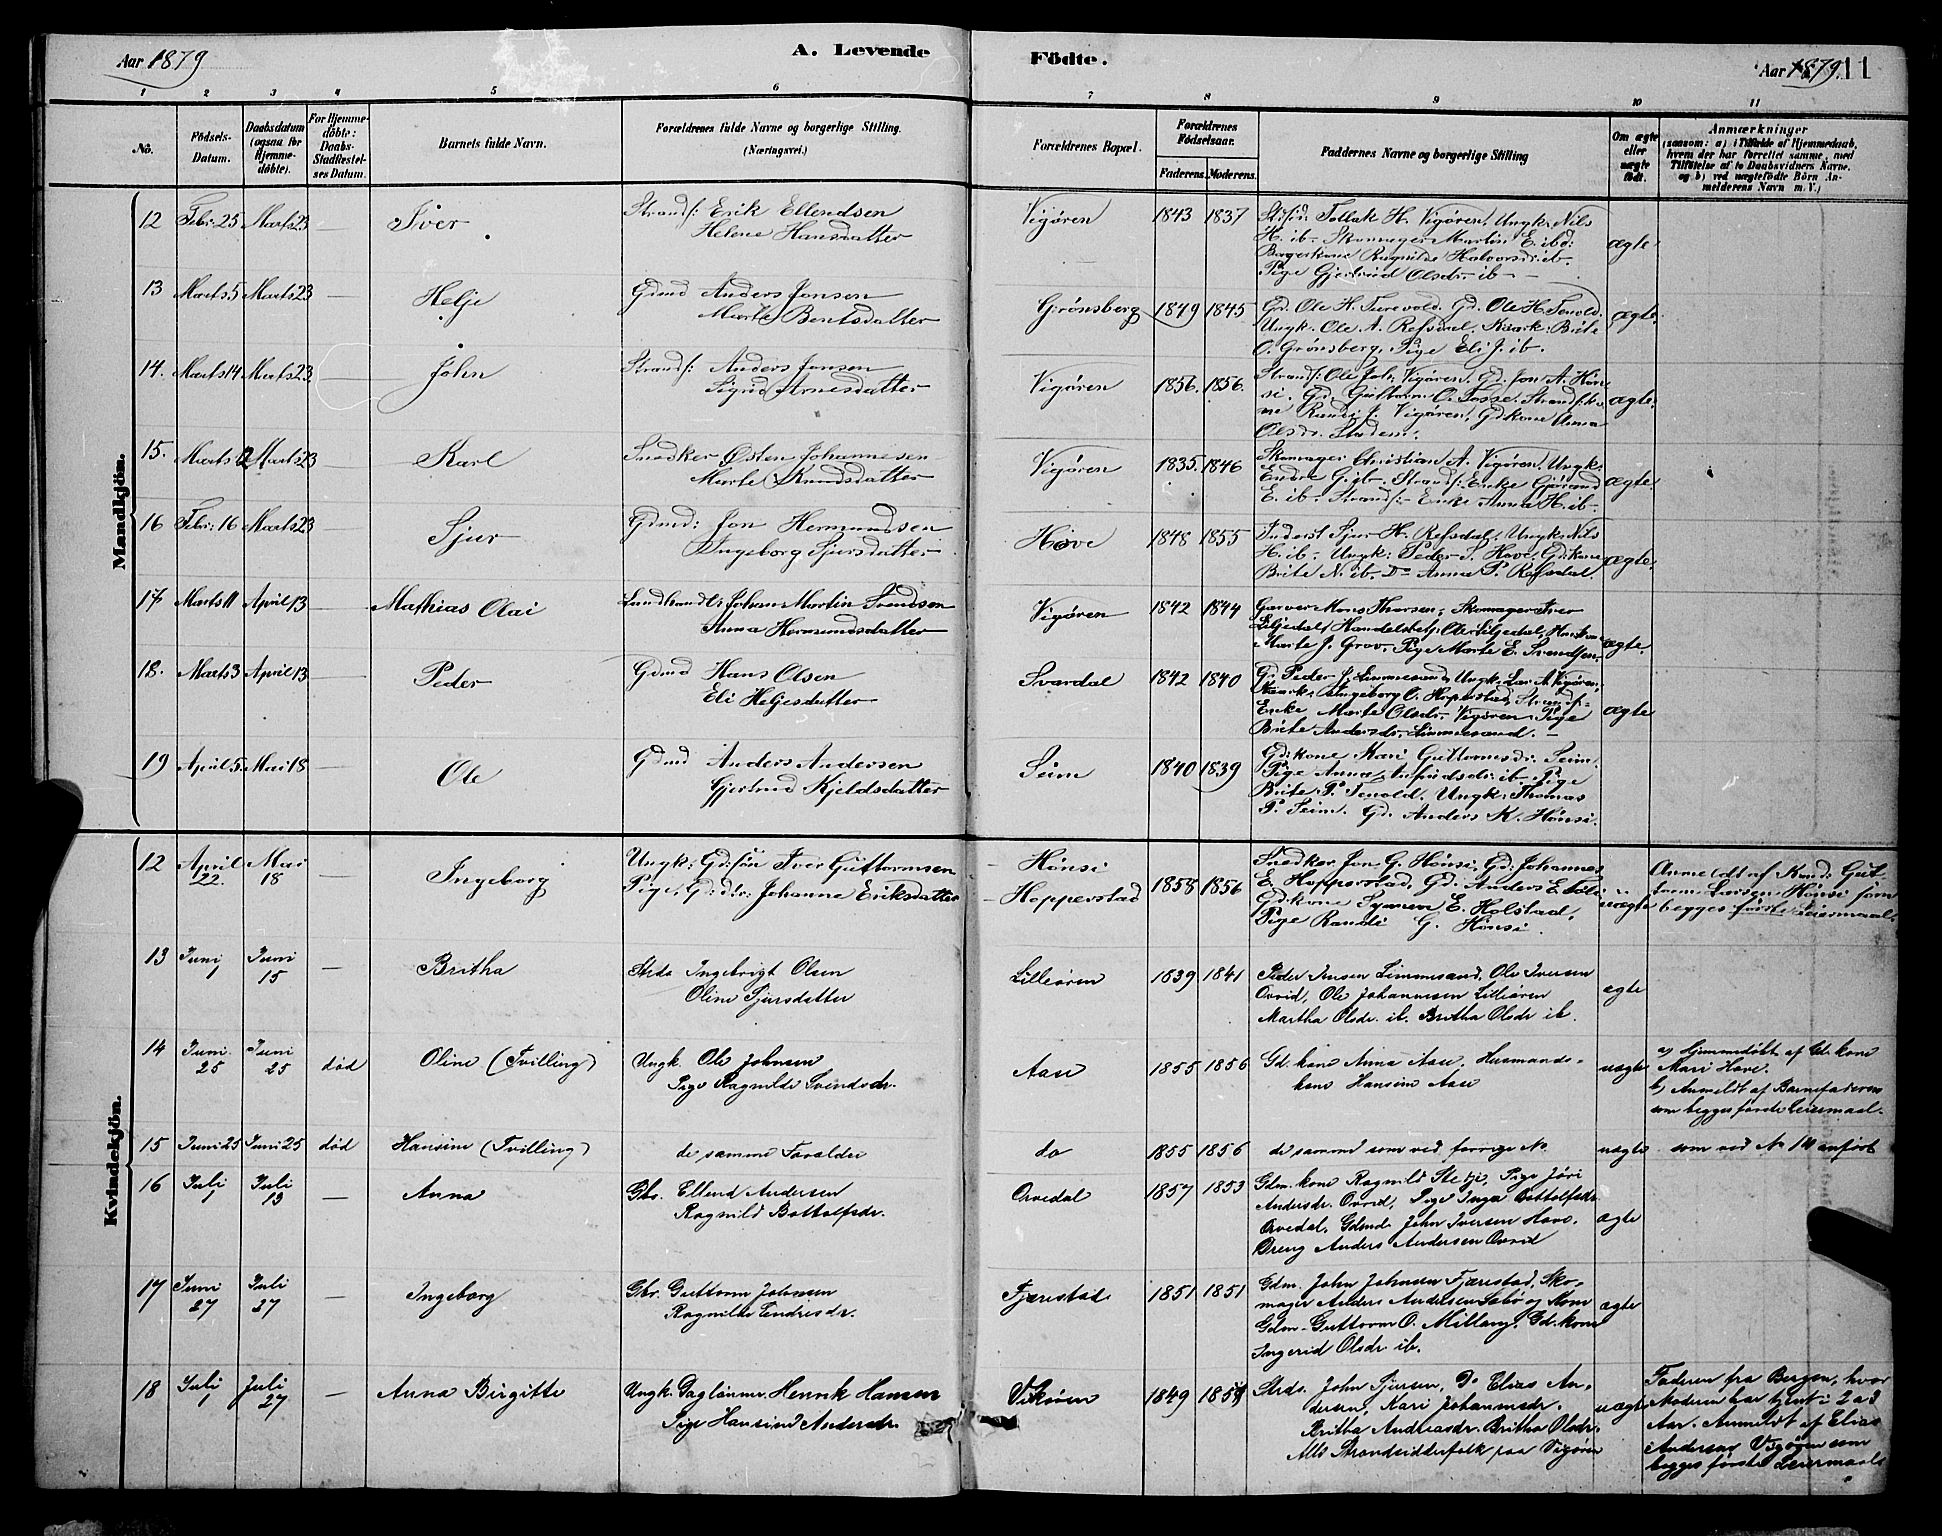 Aar 1879
A. Levende
Födte.
Aar 1879. 11
1 2 3 4 5 6 7 8 9 10 11
No.
Födsels-Datum.
Daabsdatum (ogsaa for Hjemmedöbte).
For Hjemmedöbte: Daabs-Stadfæstelses Datum.
Barnets fulde Navn.
Forældrenes fulde Navne og borgerlige Stilling. (Næringsvei.)
Forældrenes Bopæl.
Forældrenes Födselsaar.
Faderens. Moderens.
Faddernes Navne og borgerlige Stilling
Om ægte eller uægte födt.
Anmærkninger (saasom: a) i Tilfælde af Hjemmedaab, hvem der har forrettet samme, med Tilföielse af to Daabsvidners Navne, og b) ved uægtefödte Börn Anmelderens Navn m. V.)
Mandkjön.
12 Febr: 25 Marts 23 — Iver
Strands: Erik Ellendsen
Helene Hansdatter
Vigøren 1843 1837
Strds: Tollak H. Vigøren, Ungk: Nils
H. ib — Skomager Martin E. ibd:
Bagerkone Ragnilde Halvorsd: ib.
Pige Gjertrud Olsdr. ib —
ægte
13 Marts 5 Marts 23 — Helje
Gdmd Anders Jonsen
Marte Bentsdatter
Grønsberg 1849 1845
Gd. Ole H. Turvold. Gd. Ole H. Tenold.
Ungk. Ole A. Refsdal. Kaark: Brite
O. Grønsberg, Pige Eli J. ib.
ægte
14. Marts 14 Marts 23 — John
Strands: Anders Jonsen
Sigrid Arnesdatter
Vigøren 1856. 1856.
Strands: Ole Joh. Vigøren. Gd. Jon A. Høn-
si. Gd. Guttorm O. Tosse. Strands.ko-
ne Randi J. Vigøren. Gdkone Anna
Olsdr. Stadem.
ægte
15. Marts 12 Marts 23 — Karl
Snedker Østen Johannesen
Marte Knudsdatter
Vigøren 1835. 1846
Skomager Christian A. Vigøren, Ungk:
Endre G ib — Strands: Enke Gjørand
E. ib — Strands: — Enke Anna H. ib —
ægte
16 Febr: 16 Marts 23 — Sjur
Gdmd: Jon Hermundsen
Ingeborg Sjursdatter
Hove 1848 1855
Inderst Sjur H. Refsdal, Ungk: Nils
H. ib — Ungk: Peder S. Hove. Gd:kone
Brite N. ib. D= Anna P. Refsdal.
ægte
17 Marts 11 April 13 — Mathias Olai
Landhandl: Johan Martin Svendsen
Anna Hermundsdatter
Vigøren 1842 1844
Garver Mons Thorsen, Skomager Iver
Liljedal, Handelsbetj: Ole Liljedal,
Marte J. Grov. Pige Marte E. Svendsen.
ægte
18. Marts 3 April 13 — Peder
Gdmd Hans Olsen
Eli Heljesdatter
Svardal 1842 1840
Gd. Peder J. Limmesand, Ungk. Lar A. Vigøren,
Kaark: Ingeborg O. Hopperstad, Strands-
Enke Marte Olsdr. Vigøren, Pige
Brite Andersdr. Limmesand. —
ægte
19 April 5 Mai 18 — Ole
Gdmd Anders Andersen
Gjertrud Kjeldsdatter
Seim 1840 1839
Gdkone Kari Guttormsdr: Seim.
Pige Anna ib — Pige
Brite P. Tenold. Ungk: Thomas
P. Seim. Gd. Anders K. Hønsi.
Kvindekjön.
12 April 22. Mai 18 Ingeborg
Ungk: Gd:søn Iver Guttormsen
Pige, G:dtr: Johanne Eriksdatter
— Hønsi
— Hopperstad 1858 1856
Snedker Jon G. Hønsi, Gd. Johannes
E. Hopperstad, Gd. Anders E. Føli
Gdkone Synneva E. Holstad,
Pige Randi G. Hønsi.
uægte
Anmeldt af Knud Gut-
torm Larsen Hønsi som
begges første Leiermaal.
13 Juni 1 Juni 15 — Britha
Strds Ingebrigt Olsen
Oline Sjursdatter
Lilleøren 1839 1841
Peder Jensen Limmesand, Ole Iversen
Orvid, Ole Johannesen Lilleøren
Martha Olsdr. ib. Britha Olsdr ib.
ægte
14 Juni 25 Juni 25 død Oline (Tvilling)
Ungk. Ole Johnsen
Pige Ragnilde Svendsdr.
Aase 1855 1856
Gd. kone Anna Aase, Husmands-
kone Hansine Aase
uægte
a) Hjemmedøbt af Gd. kone
Mari Hove.
b) Anmeldt af Barnefaderen
som begges første Leiermaal.
15 Juni 25 Juni 25 død Hansine (Tvilling)
de samme Forældre
do 1855 1856
de samme som ved forrige No
uægte
som ved No 14 anført
16 Juli 1 Juli 13 — Anna
Gbr. Ellend Andersen
Ragnild Bottolfsdr.
Orvedal 1857 1853
Gdm. kone Ragnild Stetji, Pige Jøri
Andersdr. Orvid, Pige Inga Bottolfsdr.
Orvedal, Gdmd. John Iversen Hove.
Dreng Anders Andersen Orvid
ægte
17 Juni 27 Juli 27 — Ingeborg
Gbr. Guttorm Johnsen
Ragnilde Endresdr.
Fjærestad 1851 1851
Gdm. John Johnsen Fjærestad, Sko-
mager Anders Andersen Sabø og Kone
Gdm. Guttorm O. Millang. Gd. kone
Ingerid Olsdr. ib.
ægte
18 Juli 1 Juli 27 — Anna Birgitte
Ungk. Dagleiner. Henrik Hansen
Pige Hansine Andersdr.
Vikøren 1849 1854
Strds. John Sjursen, Do Elias An-
dersen, Kari Johannesdr.
Britha Andreasdr. Britha Olsdr.
Alle Strandsidderfolk paa Vigøren
uægte
Faderen fra Bergen, hvor
Moderen har tjent i 2 a 3
Aar. Anmeldt af Elias
Andersen Vigøren som
begges første Leiermaal